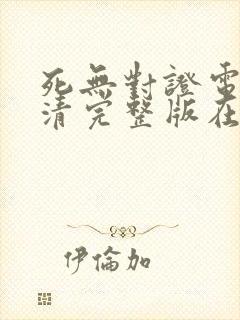 死無對證電
清完整版在
伊倫加